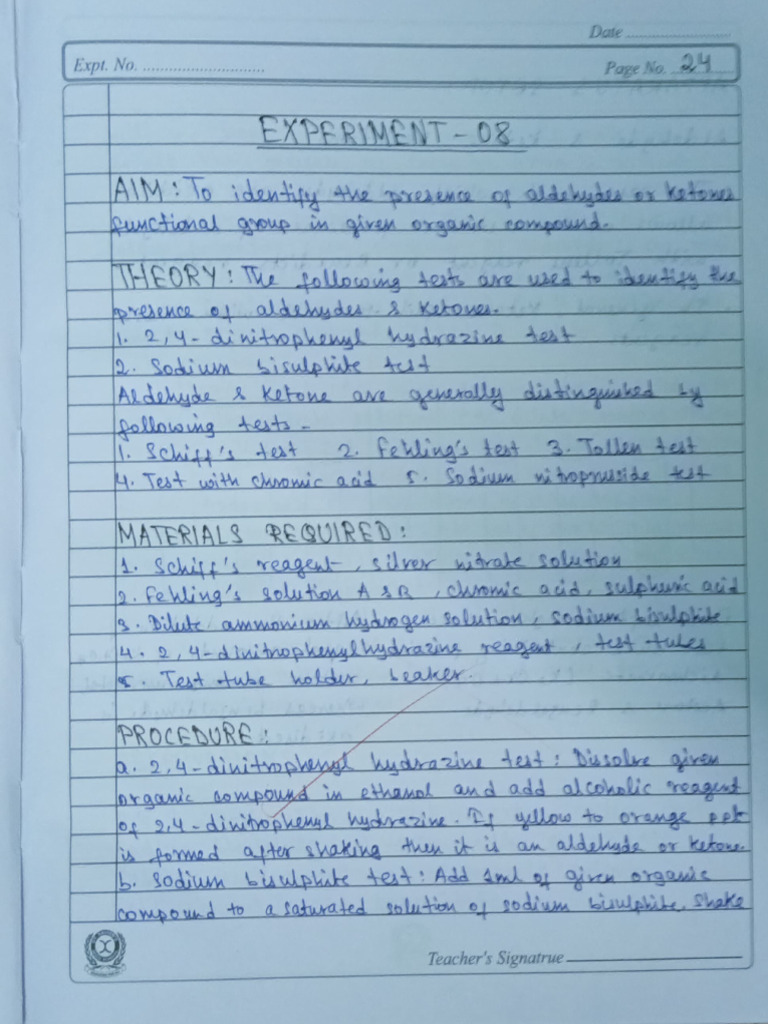 Date
Expt. No.
Page No. 24
EXPERIMENT - 08
AIM : To identify the presence of aldehydes or ketones
functional group in given organic compound.
THEORY : The following tests are used to identify the
presence of aldehydes & ketones.
1. 2,4-dinitrophenyl hydrazine test
2. Sodium bisulphite test
Aldehyde & ketone are generally distinguished by
following tests -
1. Schiff's test 2. Fehling's test 3. Tollen test
4. Test with chromic acid 5. Sodium nitopruside test
MATERIALS REQUIRED :
1. Schiff's reagent, silver nitrate solution
2. Fehling's solution A & B, chromic acid, sulphuric acid
3. Dilute ammonium hydrogen solution, sodium bisulphite
4. 2,4-dinitrophenylhydrazine reagent, test tubes
5. Test tube holder, beaker.
PROCEDURE :
a. 2,4-dinitrophenyl hydrazine test : Dissolve given
organic compound in ethanol and add alcoholic reagent
of 2,4-dinitrophenyl hydrazine. If yellow to orange ppt
is formed after shaking then it is an aldehyde or ketone.
b. Sodium bisulphite test : Add 1ml of given organic
compound to a saturated solution of sodium bisulphite. Shake
Teacher's Signatrue